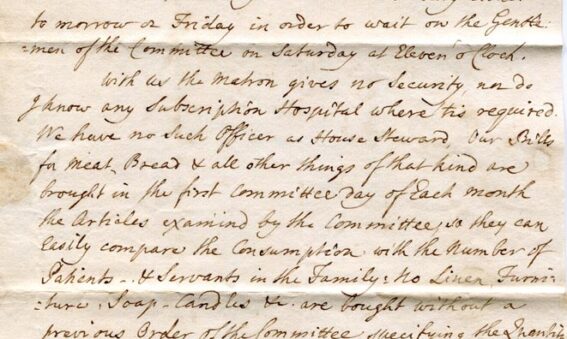 to morrow or Friday in order to wait on the Gentle:
=men of the Committee on Saturday at Eleven o'Clock.
With us the Matron gives no Security, nor do
I know any Subscription Hospital where tis required.
We have no Such Officer as House Steward. Our Bills
for Meat, Bread & all other things of that kind are
brought in the first Committee day of Each month
the Articles examind by the Committee, so they can
Easily compare the Consumption with the Number of
Patients & Servants in the Family: No Linen, Furni=
=ture, Soap, Candles &c. are bought without a
previous Order of the Committee specifying the Quantity